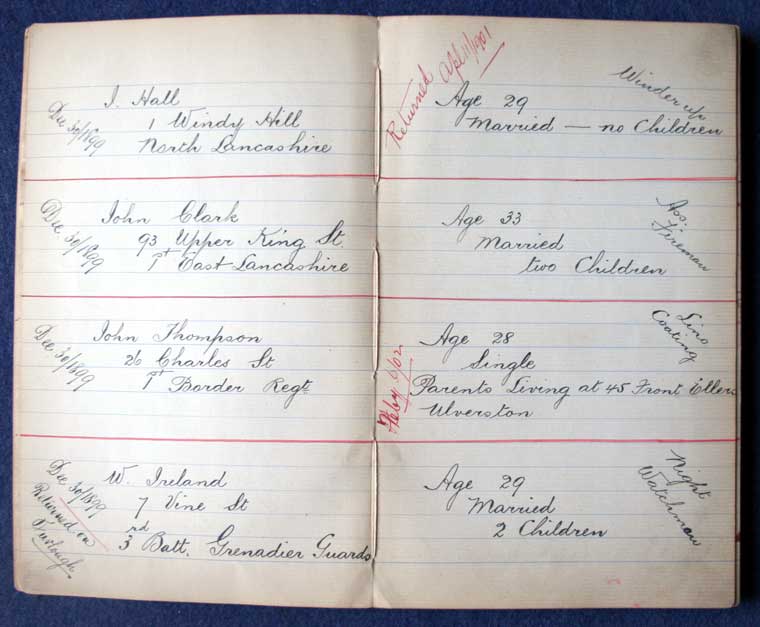 Dec 30/1899
I. Hall
1 Windy Hill
North Lancashire
Returned Apl 11/1901
Age 29
Married — no Children
Winder up
Dec 30/1899
John Clark
93 Upper King St.
1st East Lancashire
Age 33
Married
two Children
Ass:
Fireman
Dec 30/1899
John Thompson
26 Charles St
1st Border Regt.
Feby 6/02
Age 28
Single
Parents Living at 45 Front Ellers
Ulverston
Lino
Coating
Dec 30/1899
Returned on
Furlough
W. Ireland
7 Vine St
3rd Batt. Grenadier Guards
Age 29
Married
2 Children
Night
Watchman